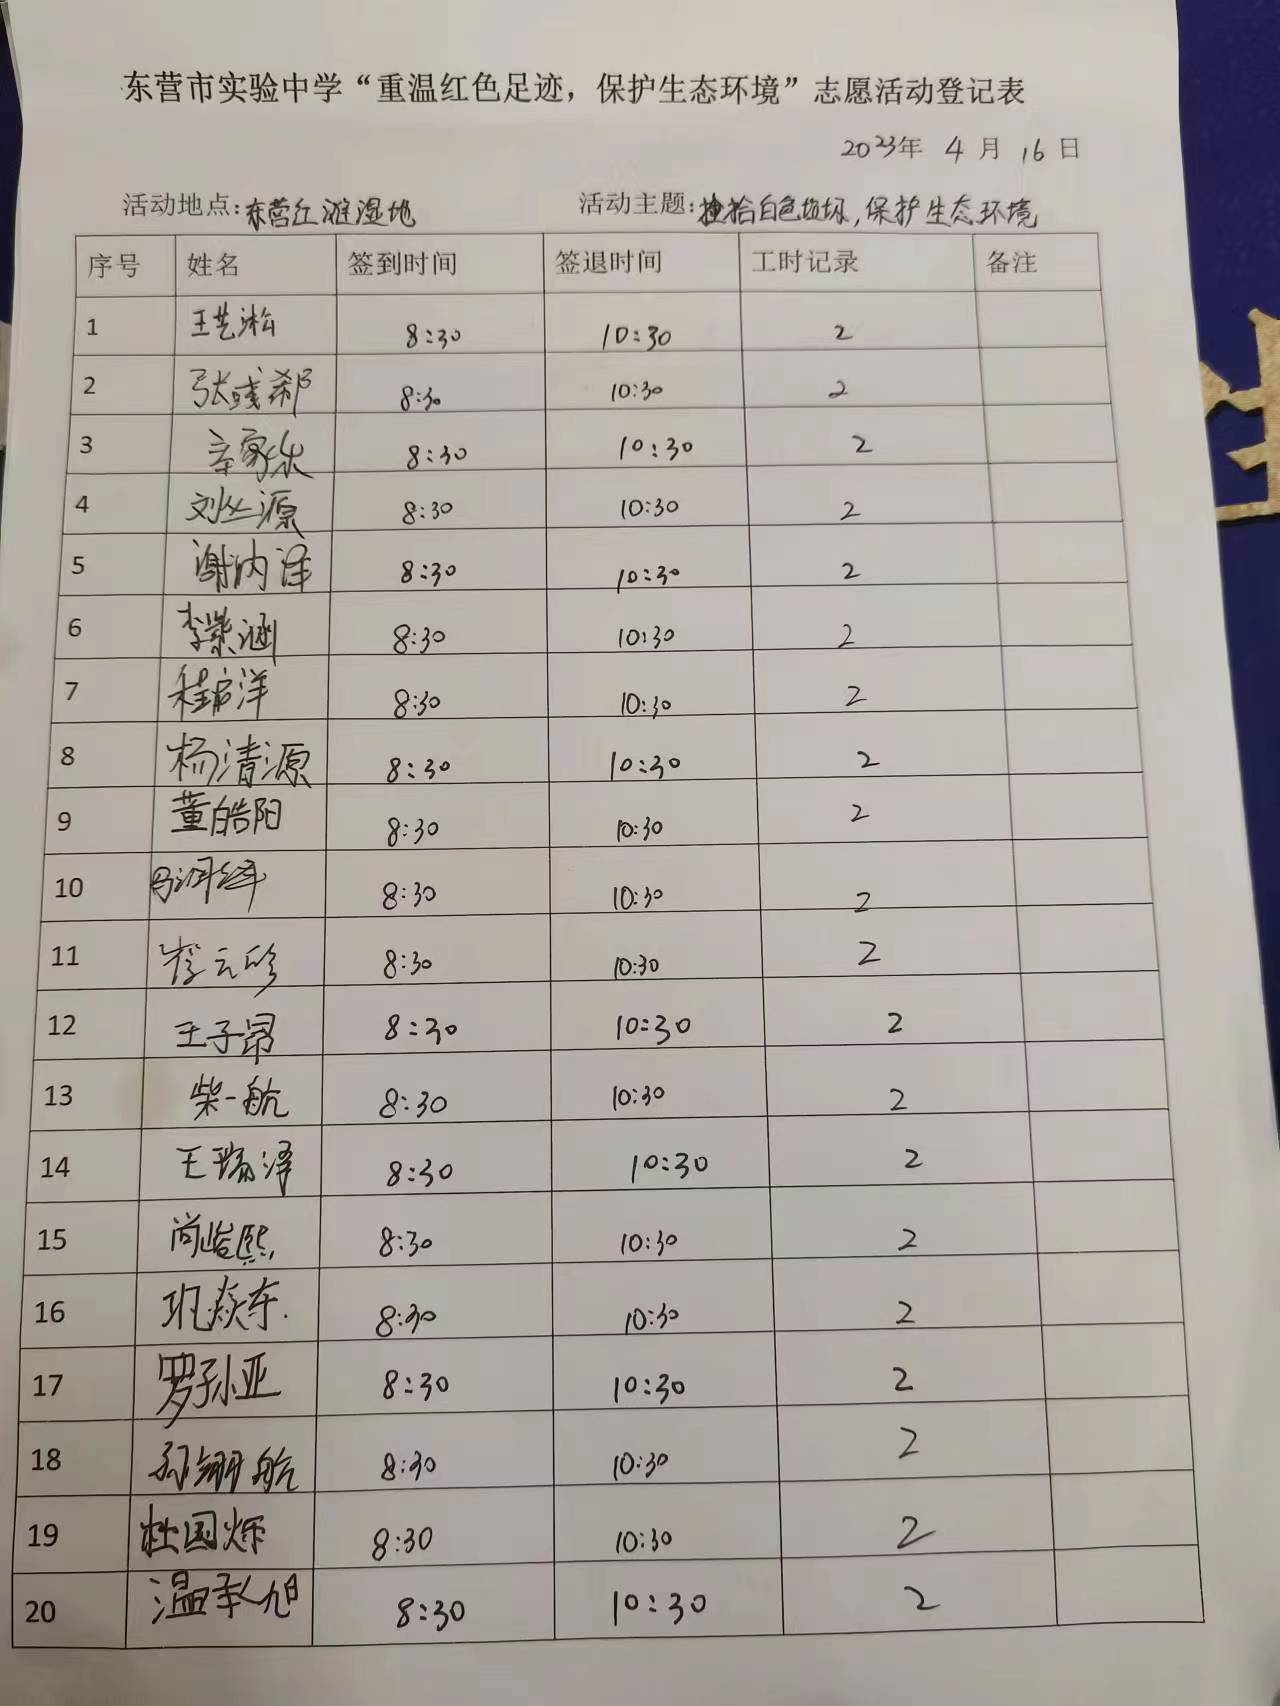 东营市实验中学“重温红色足迹，保护生态环境”志愿活动登记表
2023年 4 月 16 日
活动地点：东营红滩湿地 活动主题：捡拾白色垃圾，保护生态环境
序号 姓名 签到时间 签退时间 工时记录 备注
1 王艺淞 8:30 10:30 2
2 8:30 10:30 2
3 辛家乐 8:30 10:30 2
4 刘丛源 8:30 10:30 2
5 谢汭泽 8:30 10:30 2
6 李紫涵 8:30 10:30 2
7 程启洋 8:30 10:30 2
8 杨清源 8:30 10:30 2
9 董皓阳 8:30 10:30 2
10 8:30 10:30 2
11 8:30 10:30 2
12 王子昂 8:30 10:30 2
13 柴一航 8:30 10:30 2
14 王瑞泽 8:30 10:30 2
15 尚峻熙 8:30 10:30 2
16 巩焱东 8:30 10:30 2
17 罗孙亚 8:30 10:30 2
18 孙翊航 8:30 10:30 2
19 杜国烁 8:30 10:30 2
20 温承旭 8:30 10:30 2